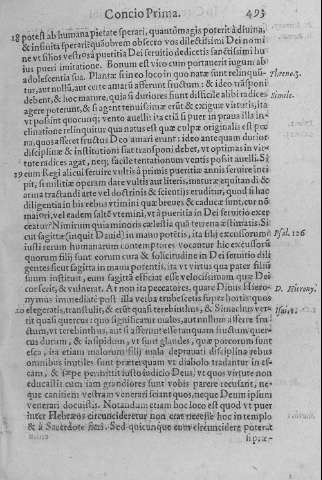 Concio Prima. 493
18 potest ab humana pietate sperari, quantò magis poterit à diuina,
& infinita sperari? quâ obrem obsecro vos dilectissimi Dei nomi
ne vt filios vestros à pueritia Dei seruitio dedicetis sanctissimi hu-
ius pueri imitatione. Bonum est viro cum portauerit iugum ab
adolescentia sua. Plantæ si in eo loco in quo natæ sunt relinquũ-
tur, aut nullũ, aut certe amarũ afferunt fructum: & ideo trãsponi
debent, & hoc mature, quia si duriores sunt difficile alibi radices
agere poterunt, & si agent tenuissimæ erũt & exiguæ virtutis, ita
vt possint quocunq; vento auelli: ita etiã si puer in praua illa in-
clinatione relinquitur qua natus est quæ culpa originalis est pœ
na, quos afferet fructus Deo amari erunt: ideo antequam duriùs
disciplinæ & institutioni fiat transponi debet, vt optimas in vir-
tute radices agat, neq; facile tentationum ventis possit auelli. Si
19 eum Regi alicui seruire vultis à primis pueritiæ annis seruire inci
pit, similiter operam date vultis aut literis, muturæ equitandi &
arma tractandi arte vel doctrinis & scientijs eruditur, quod si hæc
diligentia in his rebus vtimini quæ breues & caducæ sunt, cur nõ
maiori, vel eadem saltẽ vtemini, vt à pueritia in Dei seruitio exer
ceatur? Nimirum quia minoris cælestia quã terrena æstimatis. Si
cut sagittæ (inquit Dauid) in manu potentis, ita filij excussorum:
iusti rerum humanarum contemptores vocantur hic excussorũ
quorum filij sunt eorum cura & solicitudine in Dei seruitio dili
gentes sicut sagitta in manu potentis, ita vt virtus qua pater filiũ
suum instituit, eum sagittã efficiat esse velocissimum quæ Dei
conferit, & vulnerat. At non ita peccatores, quare Diuus Hiero-
nymus immediatè post illa verba erubescetis super hortis quos
20 elegeratis, transtulit, & erũt quasi terebinthus, & Simachus ver-
tit quasi quercus: quò significatur malos, aut nullum afferre fru-
ctum, vt terebinthus, aut si afferunt esse tanquam fructum quer-
cus durum, & insipidum, vt sunt glandes, quæ porcorum sunt
esca, ita etiam malorum filij mala deprauati disciplina rebus
omnibus inutiles sunt præterquam vt diabolo tradantur in es-
cam, & sæpe permittit iusto iudicio Deus, vt quos virtute non
educastis cum iam grandiores sunt vobis parere recusent, ne-
que canitiem vestram venerari sciant quos, neque Deum ipsum
venerari docuistis. Notandum etiam hoc loco est quod vt puer
inter Hebræos circuncideretur non erat necesse hoc in templo
& à Sacerdote fieri. Sed quicunque eum circuncidere poterat
Threno. 3.
Simile.
Psal. 126
D. Hierony.
Isai. 1.